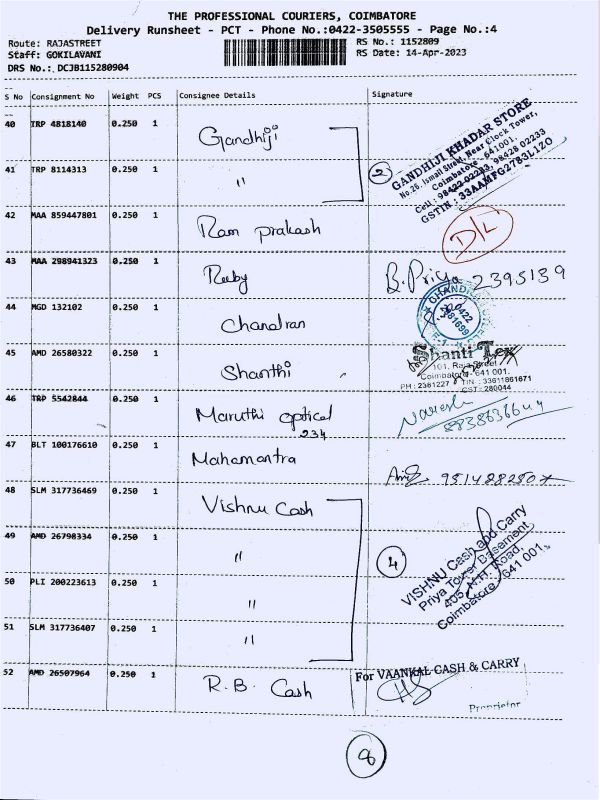 THE PROFESSIONAL COURIERS, COIMBATORE
Delivery Runsheet - PCT - Phone No.:0422-3505555 - Page No.:4
Route: RAJASTREET
Staff: GOKILAVANI
DRS No.: DCJB115280904
RS No.: 1152809
RS Date: 14-Apr-2023
S No Consignment No Weight PCS Consignee Details Signature
40 TRP 4818140 0.250 1 Gandhiji
41 TRP 8114313 0.250 1 "
2
GANDHIJI KHADAR STORE
No.26, Ismail Street, Near Clock Tower,
Coimbatore - 641001.
Cell : 98422 02233, 98428 02233
GSTIN : 33AAMFG2783L1ZO
42 MAA 859447801 0.250 1 Ram prakash D/L
43 MAA 298941323 0.250 1 Ruby B. Priya 2395139
44 MGD 132102 0.250 1 Chandran
45 AMD 26580322 0.250 1 Shanthi
Shanti Tex
101, Raja Street
Coimbatore - 641 001.
PH : 2361227 TIN : 33611861671
CST : 280044
46 TRP 5542844 0.250 1 Maruthi optical
234
Naresh
8838636644
47 BLT 100176610 0.250 1 Mahamantra
48 SLM 317736469 0.250 1 Vishnu Cash
49 AMD 26798334 0.250 1 "
50 PLI 200223613 0.250 1 "
51 SLM 317736407 0.250 1 "
4
VISHNU Cash and Carry
Priya Tower Basement
405, N.H. Road
Coimbatore - 641 001.
52 AMD 26507964 0.250 1 R.B. Cash
For VAANKAL CASH & CARRY
Proprietor
8